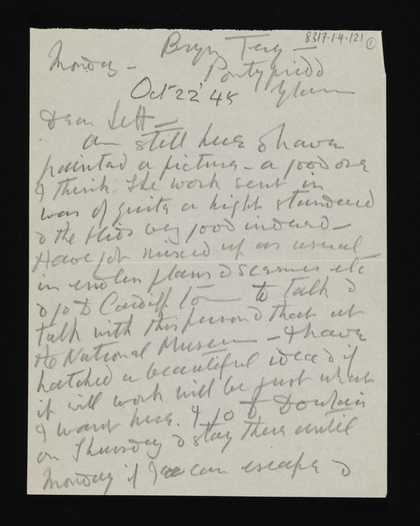 8317.1.4.121
1
Bryn Terg
Monday - Pontypridd
Oct 22' 45 Glam
Dear Sett -
Am still here & have
painted a picture - a good one
I think. The work sent in
was of quite a high standard
& the kids very good indeed -
Have got mixed up as usual
in endless plans & schemes etc
& go to Cardiff to talk &
talk with this person & that at
the National Museum - I have
hatched a beautiful idea & if
it will work will be just what
I want here. I go to Dowlais
on Thursday & stay there until
Monday if I can escape &